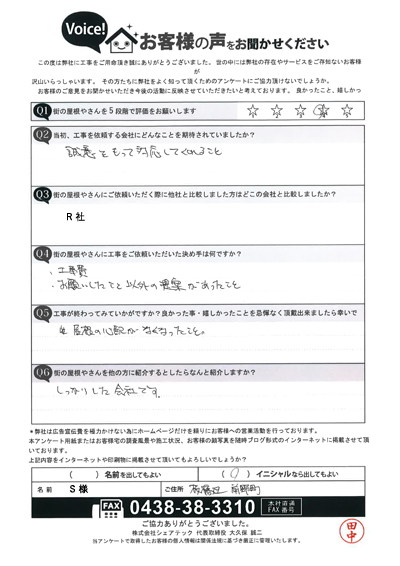 Voice!
お客様の声をお聞かせください
この度は弊社に工事をご用命頂き誠にありがとうございました。世の中には弊社の存在やサービスをご存知ないお客様が
沢山いらっしゃいます。その方たちに弊社をよく知って頂くためのアンケートにご協力頂けないでしょうか。
お客様のご意見をお聞かせいただき今後の活動に反映させていただきたいと考えております。良かったこと、嬉しかっ
Q1 街の屋根やさんを5段階で評価をお願いします ☆ ☆ ☆ ☆ ☆
Q2 当初、工事を依頼する会社にどんなことを期待されていましたか?
誠意をもって対応してくれること
Q3 街の屋根やさんにご依頼いただく際に他社と比較しました方はどこの会社と比較しましたか?
R社
Q4 街の屋根やさんに工事をご依頼いただいた決め手は何ですか?
・工事費
・お願いしたこと以外の提案があったこと
Q5 工事が終わってみていかがですか?良かった事・嬉しかったことを忌憚なく頂戴出来ましたら幸いで
屋根の心配がなくなったこと。
Q6 街の屋根やさんを他の方に紹介するとしたらなんと紹介しますか?
しっかりした会社です。
*弊社は広告宣伝費を極力かけない為にホームページだけを頼りにお客様への営業活動を行っております。
本アンケート用紙またはお客様宅の調査風景や施工状況、お客様の顔写真を随時ブログ形式のインターネットに掲載させて頂
いております。
上記内容をインターネットや印刷物に掲載させて頂いてもよろしいでしょうか?
( ) 名前を出してもよい (○) イニシャルなら出してもよい
名前 S様 ご住所 板橋区
FAX 0438-38-3310 本社直通FAX番号
ご協力ありがとうございました。
株式会社シェアテック 代表取締役 大久保 誠二
当アンケートで取得したお客様の個人情報は関係法規に基づき厳正に管理いたします。
田中